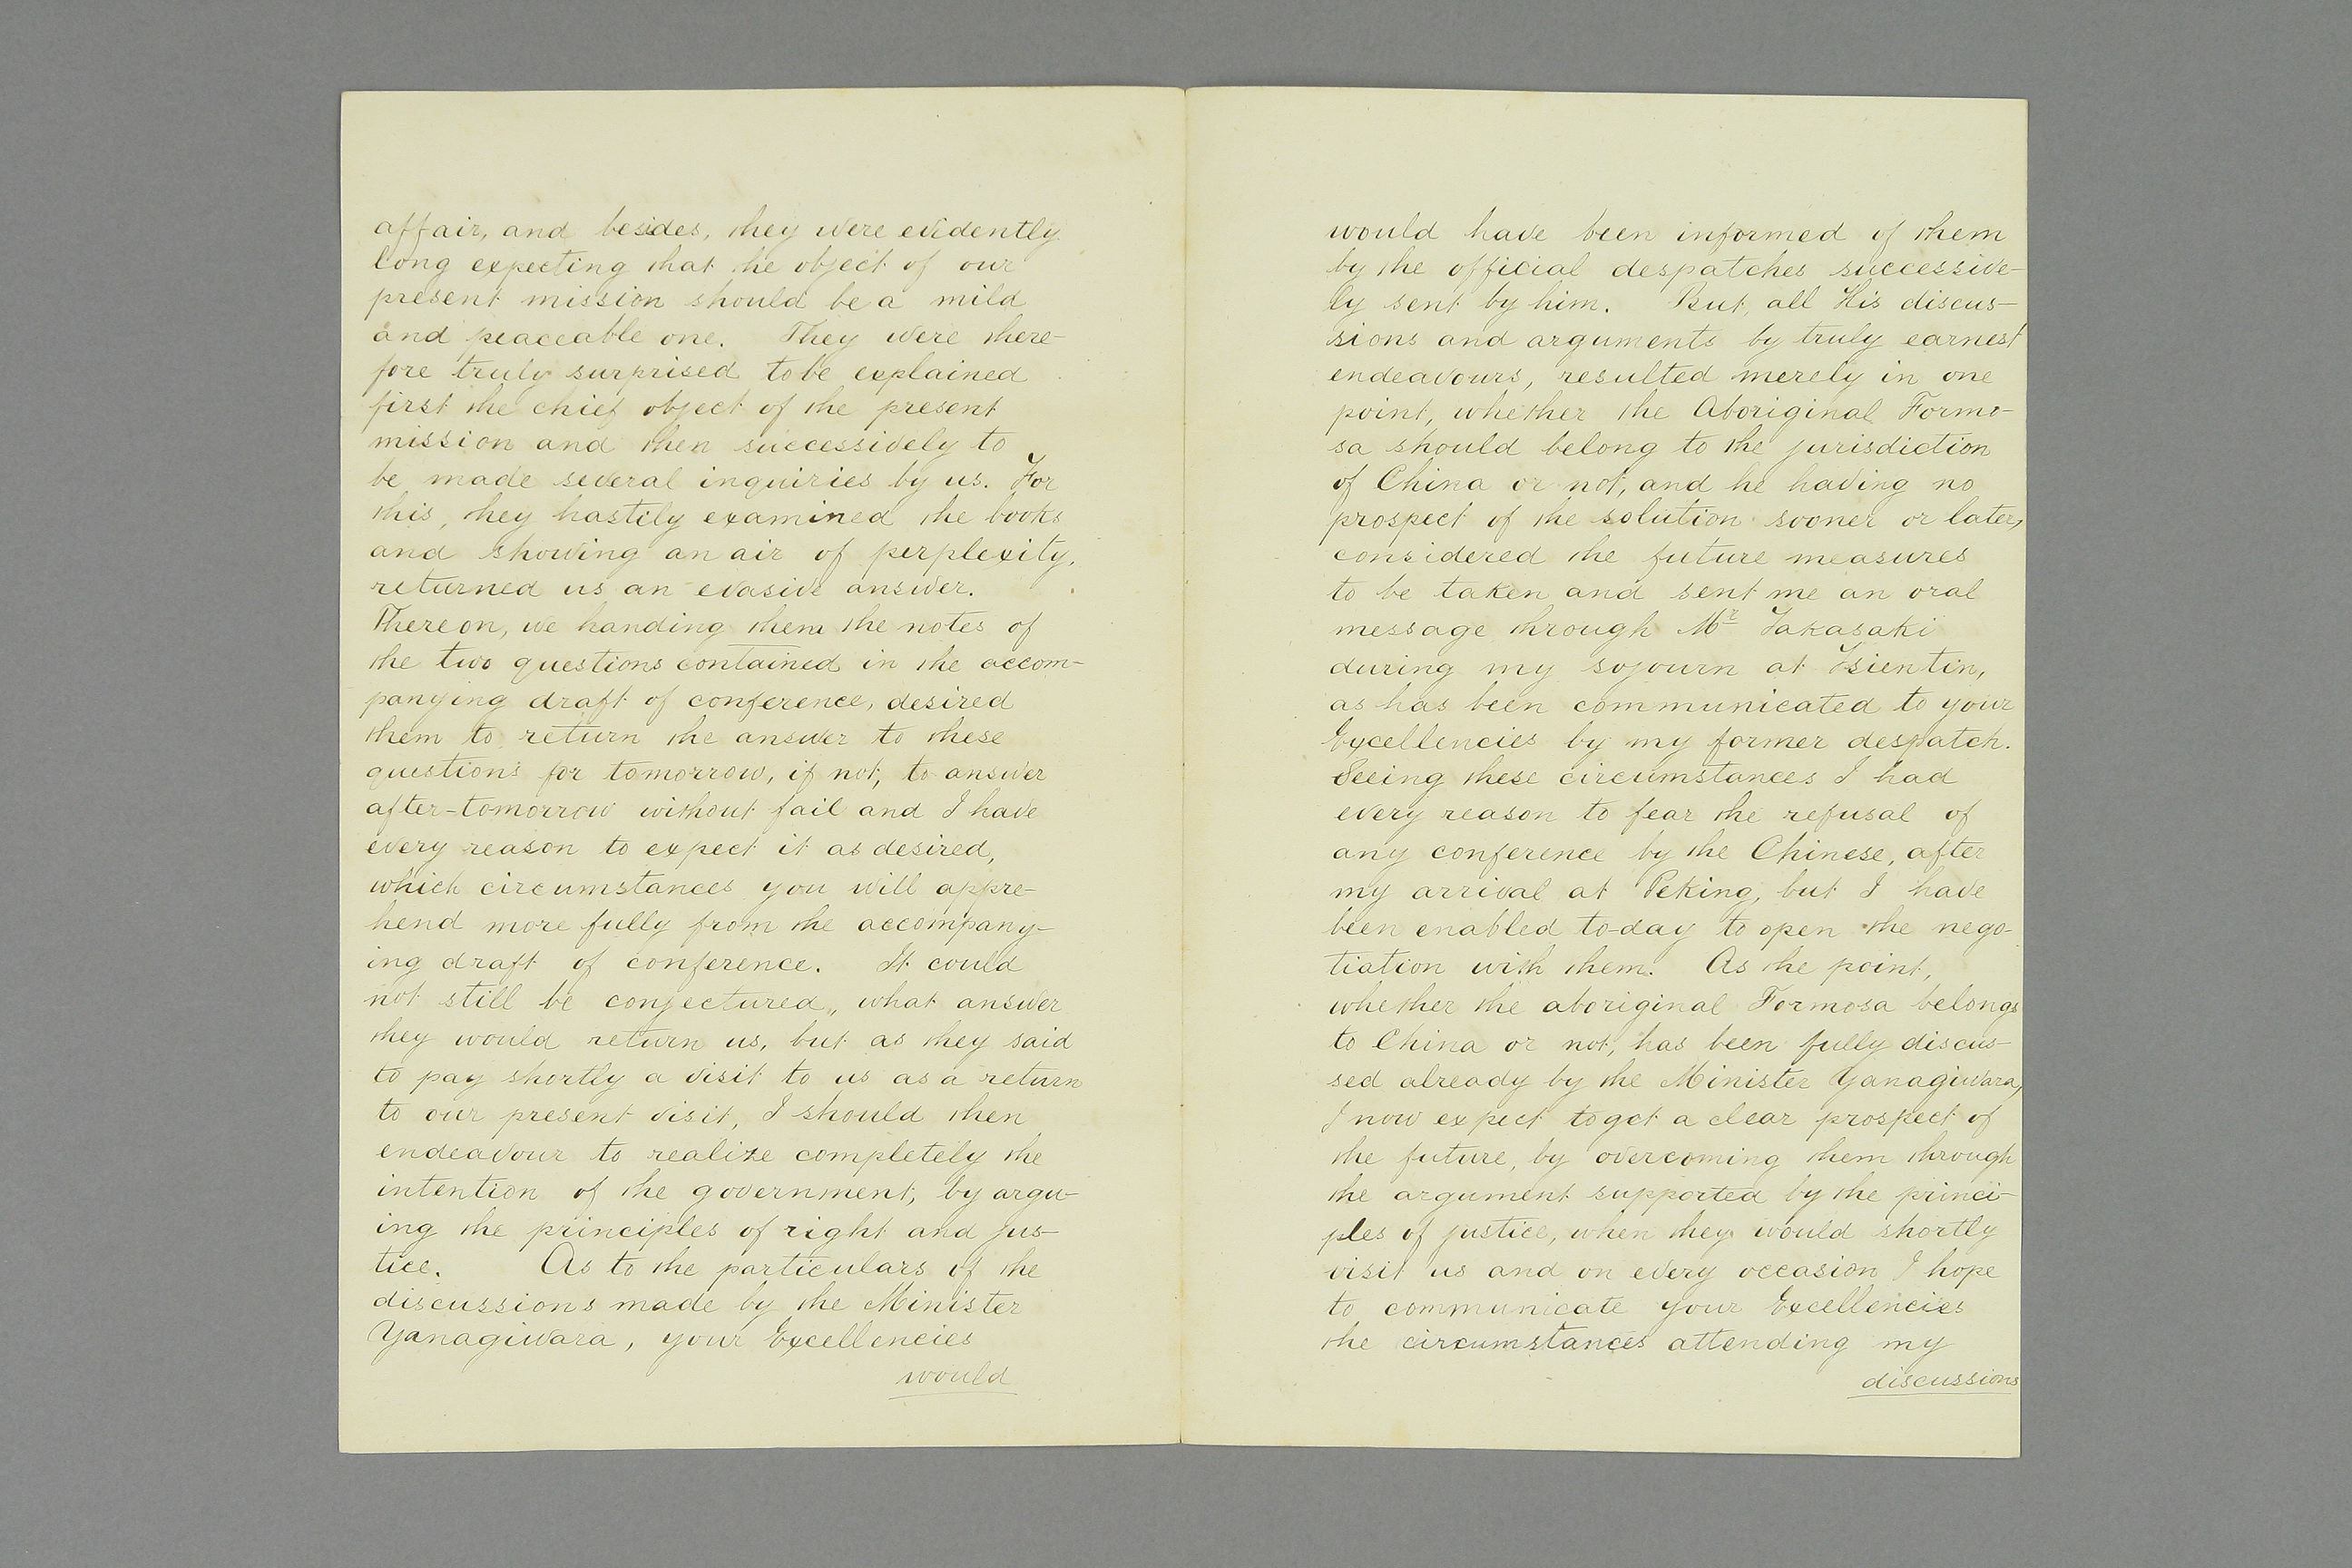 affair, and besides, they were evidently
long expecting that the object of our
present mission should be a mild
and peaceable one. They were there-
fore truly surprised to be explained
first the chief object of the present
mission and then successively to
be made several inquiries by us. For
this, they hastily examined the books
and showing an air of perplexity,
returned us an evasive answer.
Thereon, we handing them the notes of
the two questions contained in the accom-
panying draft of conference, desired
them to return the answer to these
questions for tomorrow, if not, to answer
after-tomorrow without fail and I have
every reason to expect it as desired,
which circumstances you will appre-
hend more fully from the accompany-
ing draft of conference. It could
not still be conjectured, what answer
they would return us, but as they said
to pay shortly a visit to us as a return
to our present visit, I should then
endeavour to realize completely the
intention of the government, by argu-
ing the principles of right and jus-
tice. As to the particulars of the
discussions made by the Minister
Yanagiwara, your Excellencies
would
would have been informed of them
by the official despatches successive-
ly sent by him. But, all His discus-
sions and arguments by truly earnest
endeavours, resulted merely in one
point, whether the Aboriginal Formo-
sa should belong to the jurisdiction
of China or not, and he having no
prospect of the solution sooner or later,
considered the future measures
to be taken and sent me an oral
message through Mr Takasaki
during my sojourn at Tsientin,
as has been communicated to your
Excellencies by my former despatch.
Seeing these circumstances I had
every reason to fear the refusal of
any conference by the Chinese, after
my arrival at Peking, but I have
been enabled to-day to open the nego-
tiation with them. As the point,
whether the aboriginal Formosa belongs
to China or not, has been fully discus-
sed already by the Minister Yanagiwara,
I now expect to get a clear prospect of
the future, by overcoming them through
the argument supported by the princi-
ples of justice, when they would shortly
visit us and on every occasion I hope
to communicate your Excellencies
the circumstances attending my
discussions